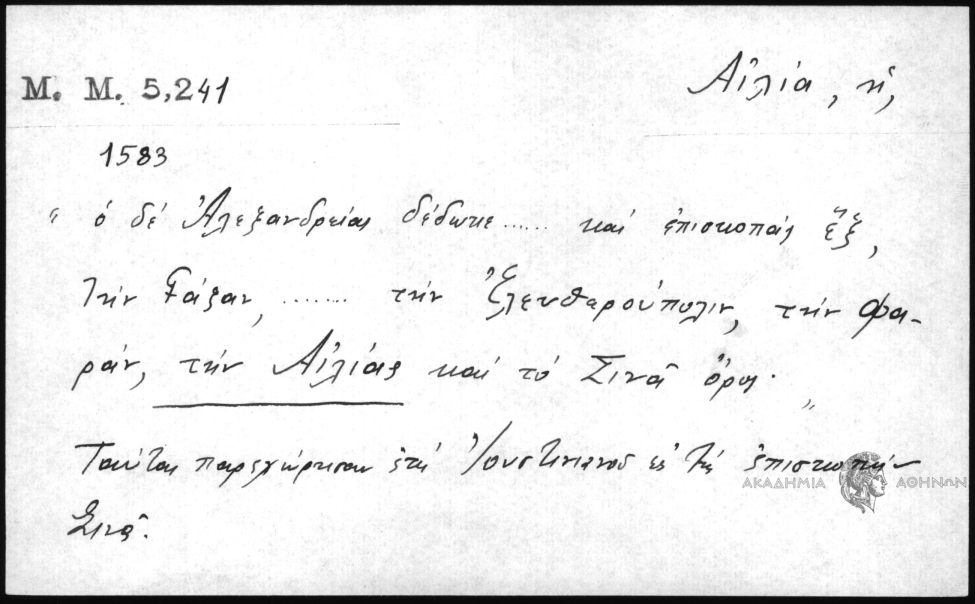 M. M. 5,241
Αἰλία, ἡ,
1583
" ὁ δέ Ἀλεξανδρείας δέδωκε ...... καί ἐπισκοπάς ἕξ,
τήν Γάζαν, ....... τήν Ἐλευθερούπολιν, τήν Φα-
ράν, τήν Αἰλίας καί τό Σινᾶ ὄρος. "
Ταύτας παρεχώρησαν ἐπί Ἰουστινιανοῦ εἰς τήν ἐπισκοπήν
Σινᾶ.
ΑΚΑΔΗΜΙΑ ΑΘΗΝΩΝ